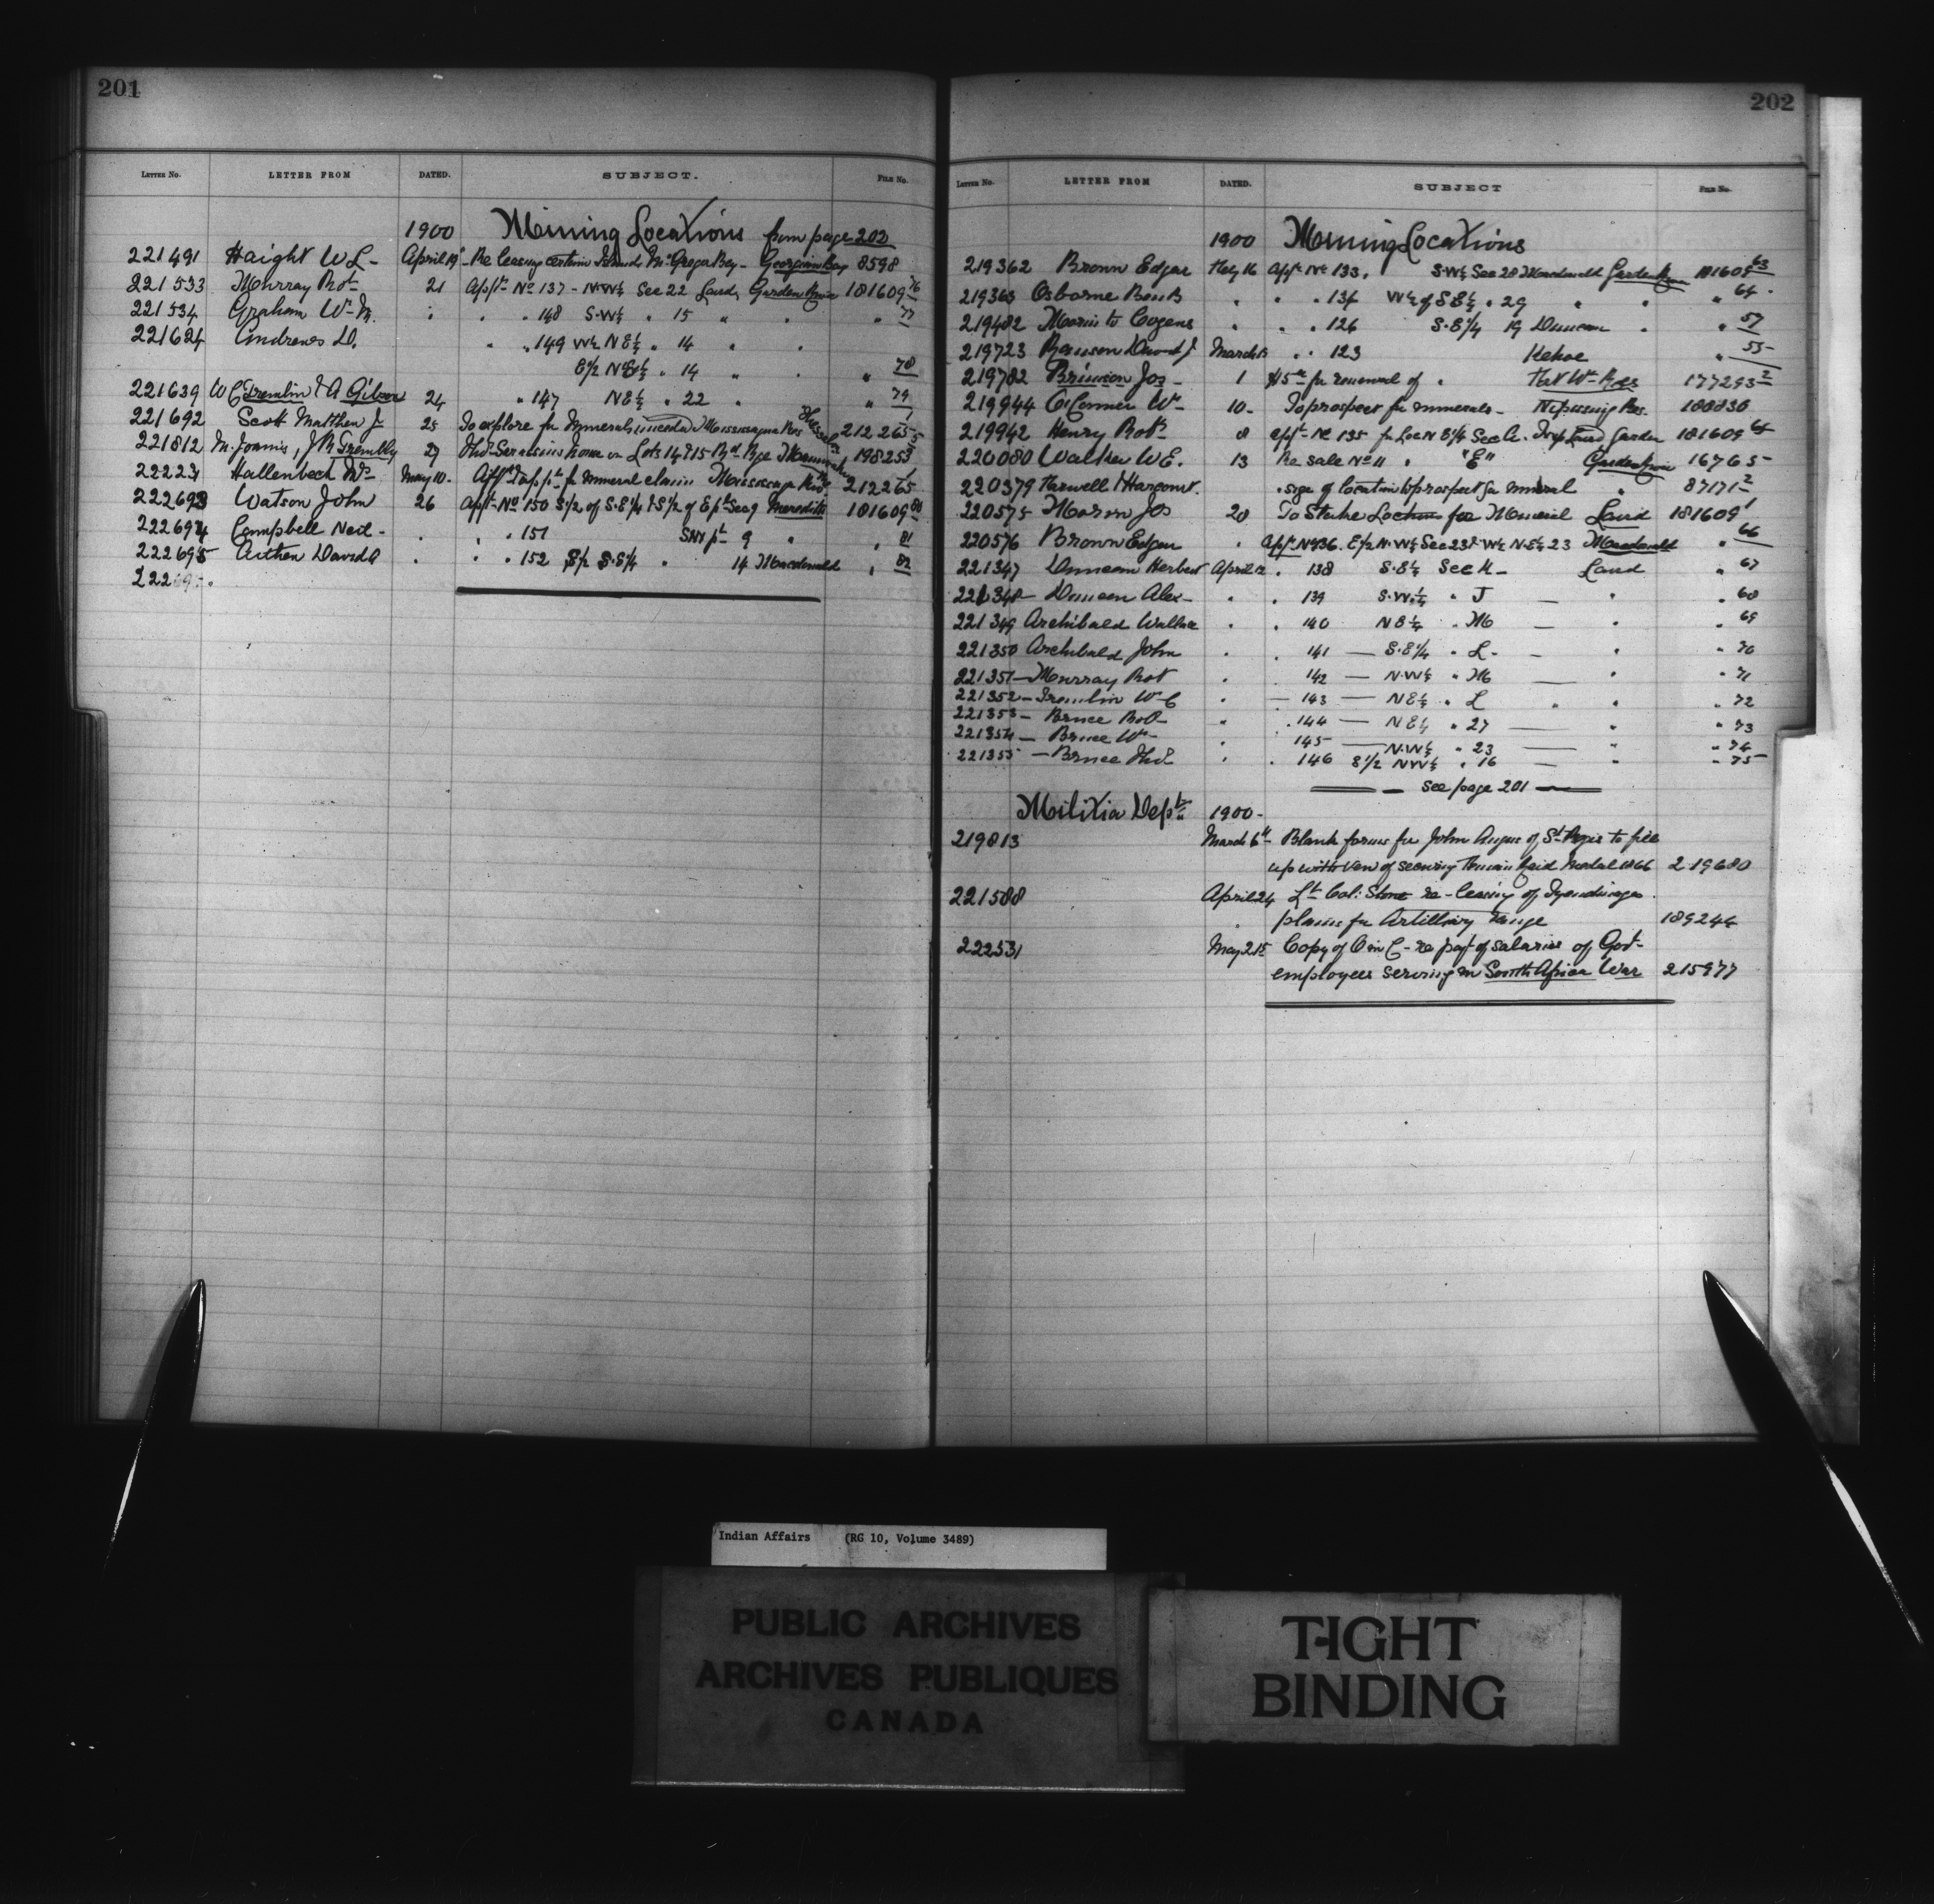 201
LETTER No. LETTER FROM DATED. SUBJECT. FILE No.
1900 Mining Locations from page 202
221491 Haight W L - April 19 - Re leasing certain Islands McGregor Bay - Georgian Bay 8598
221533 Murray Robt 21 Appn No 137 - N.W¼ Sec 22 Laird, Garden River 181609 76
221534 Graham Wm " " 148 S.W¼ " 15 " " " 77
221624 Andrews D. " " 149 W½ N E¼ " 14 " "
E½ N E¼ " 14 " " 78
221639 W C Tremlin & A Gibson 24 " 147 N E¼ " 22 " " 79
221692 Scott Matthew J 25 To explore for Minerals Mississagua Res 212265
221812 J R Trembly 27 on Lots 14 & 15 198253
22223 Hallenbeck May 10 - for mineral claim Mississaga River 212265
222693 Watson John 26 Appn No 150 S½ of S.E¼ & S½ of E pt Sec 9 Meredith 181609 80
222694 Campbell Neil - " " " 151 S W pt 9 " " 81
222695 Aitken David A " " " 152 S½ S.E¼ " 14 Macdonald " 82
222695
202
LETTER No. LETTER FROM DATED. SUBJECT FILE No.
1900 Mining Locations
219362 Brown Edgar Feby 16 Appn No 133. S.W¼ Sec 28 Macdonald Garden River 181609 63
219363 Osborne Ben B " " " 134 W½ of S E¼ " 29 " " " 64
219482 Morin to Cozens " " " 126 S.E¼ 19 Duncan " " 57
219723 David J March 13 " " 123 Kehoe " 55
219782 Brinnon Jos - 1 $5 for renewal of " Fort Wm Res 177293 2
219944 O'Connor Wm - 10 - To prospect for minerals - Nipissing Res. 188836
219942 Henry Robt 8 Appn No 135 for Loc N E¼ Sec Laird Garden 181609 65
220080 Walker W E. 13 Re sale No 11 " "E" Garden River 16765
220379 Farwell & Harcourt. " size of location to prospect for mineral " 87171 2
220575 Morin Jos 28 To Stake Location for Mineral Laird 181609 1
220576 Brown Edgar " Appn No 136. E½ N.W¼ Sec 23 & W½ N.E¼ 23 Macdonald " 66
221347 Duncan Herbert April 12 " 138 S.E¼ Sec K - Laird " 67
221348 - Duncan Alex - " " 139 S.W.¼ " J — " " 68
221349 Archibald Wallace " " 140 N E¼ " M — " " 69
221350 Archibald John " " 141 — S.E¼ " L - - " " 70
221351 - Murray Robt " 142 — N.W¼ " M — " " 71
221352 - Tremlin W C " — 143 — N E¼ " L " " " 72
221353 - Bruce Robt - " " 144 — N E¼ " 27 — " " 73
221354 — Bruce Wm - " 145 — N.W¼ " 23 — " " 74
221355 — Bruce Thos " " 146 E½ N W¼ " 16 — " " 75
See page 201
Militia Dept 1900 -
219813 March 6th Blank forms for John Angus of St Regis to fill
up with view of securing Fenian Raid Medal 1866 219680
221588 April 24 Lt Col: Stone re - leasing of Tyendinaga
plains for Artillery range 189244
222531 May 21st Copy of O in C - re payt of salaries of Govt
employees serving in South Africa War 215977
Indian Affairs (RG 10, Volume 3489)
PUBLIC ARCHIVES
ARCHIVES PUBLIQUES
CANADA
TIGHT
BINDING